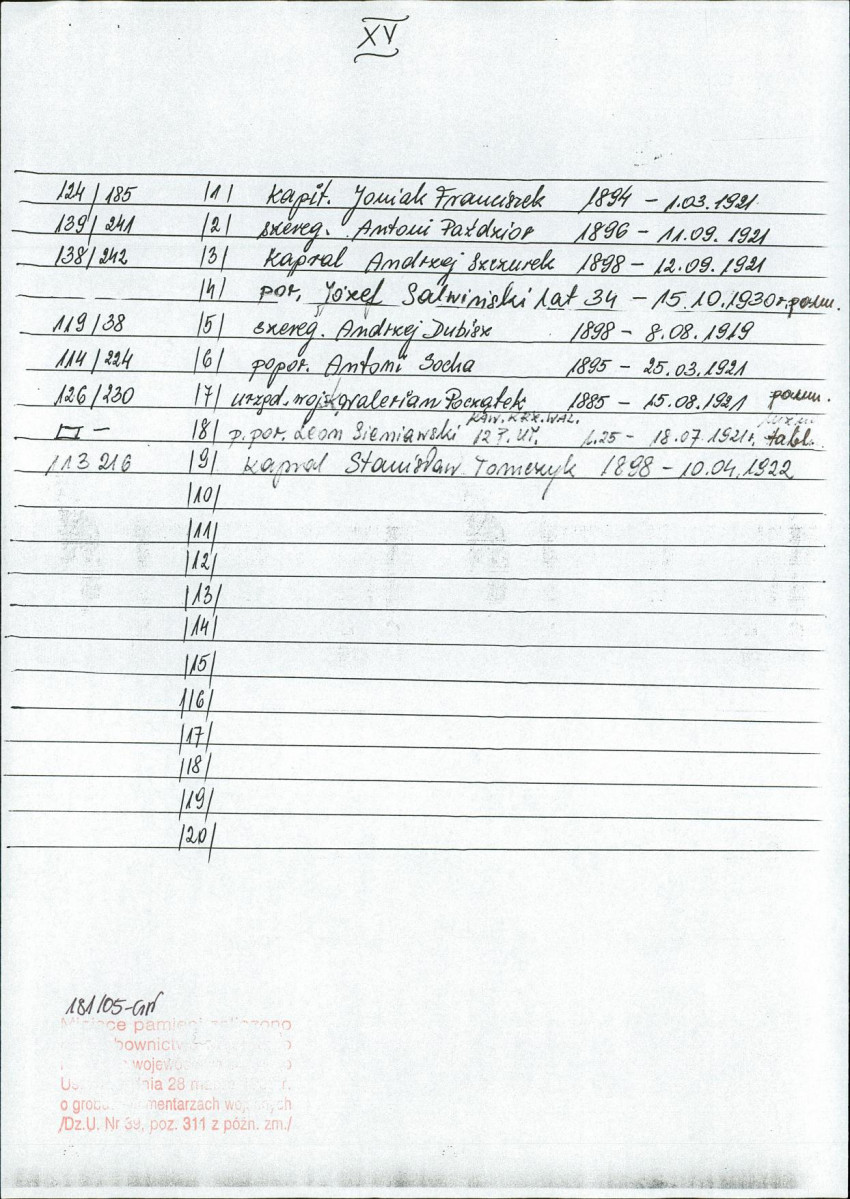 XV
124/185 /1/ Kapit. Joniak Franciszek 1894 - 1.03.1921
139/241 /2/ szereg. Antoni Paździor 1896 - 11.09.1921
138/242 /3/ Kapral Andrzej Szczurek 1898 - 12.09.1921
/4/ por. Józef Salwiński lat 34 - 15.10.1930r. pomn.
119/38 /5/ szereg. Andrzej Dubisz 1898 - 8.08.1919
114/224 /6/ popor. Antoni Socha 1895 - 25.03.1921
126/230 /7/ urzęd. wojsk. Walerian Początek 1885 - 15.08.1921 pomn.
KAW. KRZ. WAL.
- /8/ p.por. Leon Sieniawski 12 P. UŁ. l.25 - 18.07.1921r. tabl.
113 216 /9/ Kapral Stanisław Tomczyk 1898 - 10.04.1922
/10/
/11/
/12/
/13/
/14/
/15/
/16/
/17/
/18/
/19/
/20/
181/05-GW
Miejsce pamięci zaliczono
wojew
28
o grob mentarzach woj nych
/Dz.U. Nr 39, poz. 311 z późn. zm./